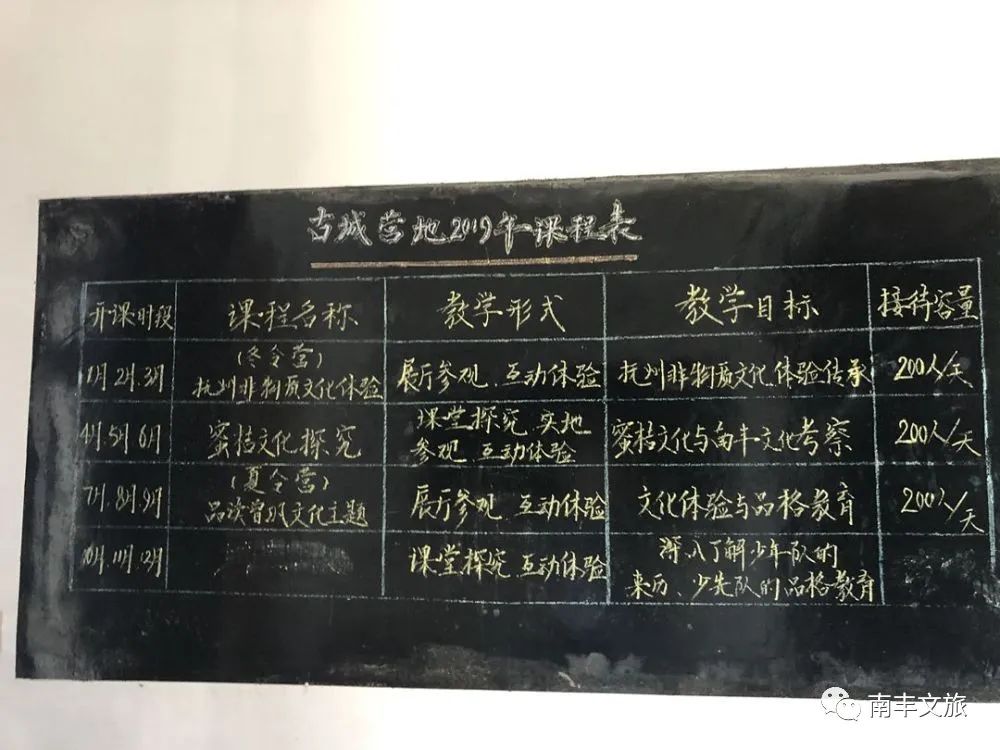 古城营地2019年课程表
开课时段 课程名称 教学形式 教学目标 接待容量
1月2月.3月 (冬令营) 抚州非物质文化体验 展厅参观、互动体验 抚州非物质文化体验传承 200人/天
4月5月6月 蜜桔文化探究 课堂探究、实地 参观、互动体验 蜜桔文化与南丰文化考察 200人/天
7月.8月.9月 (夏令营) 品读曾巩文化主题 展厅参观、互动体验 文化体验与品格教育 200人/天
10月.11月.12月 课堂探究、互动体验 深入了解少年队的 来历、少先队的品格教育
南丰文旅